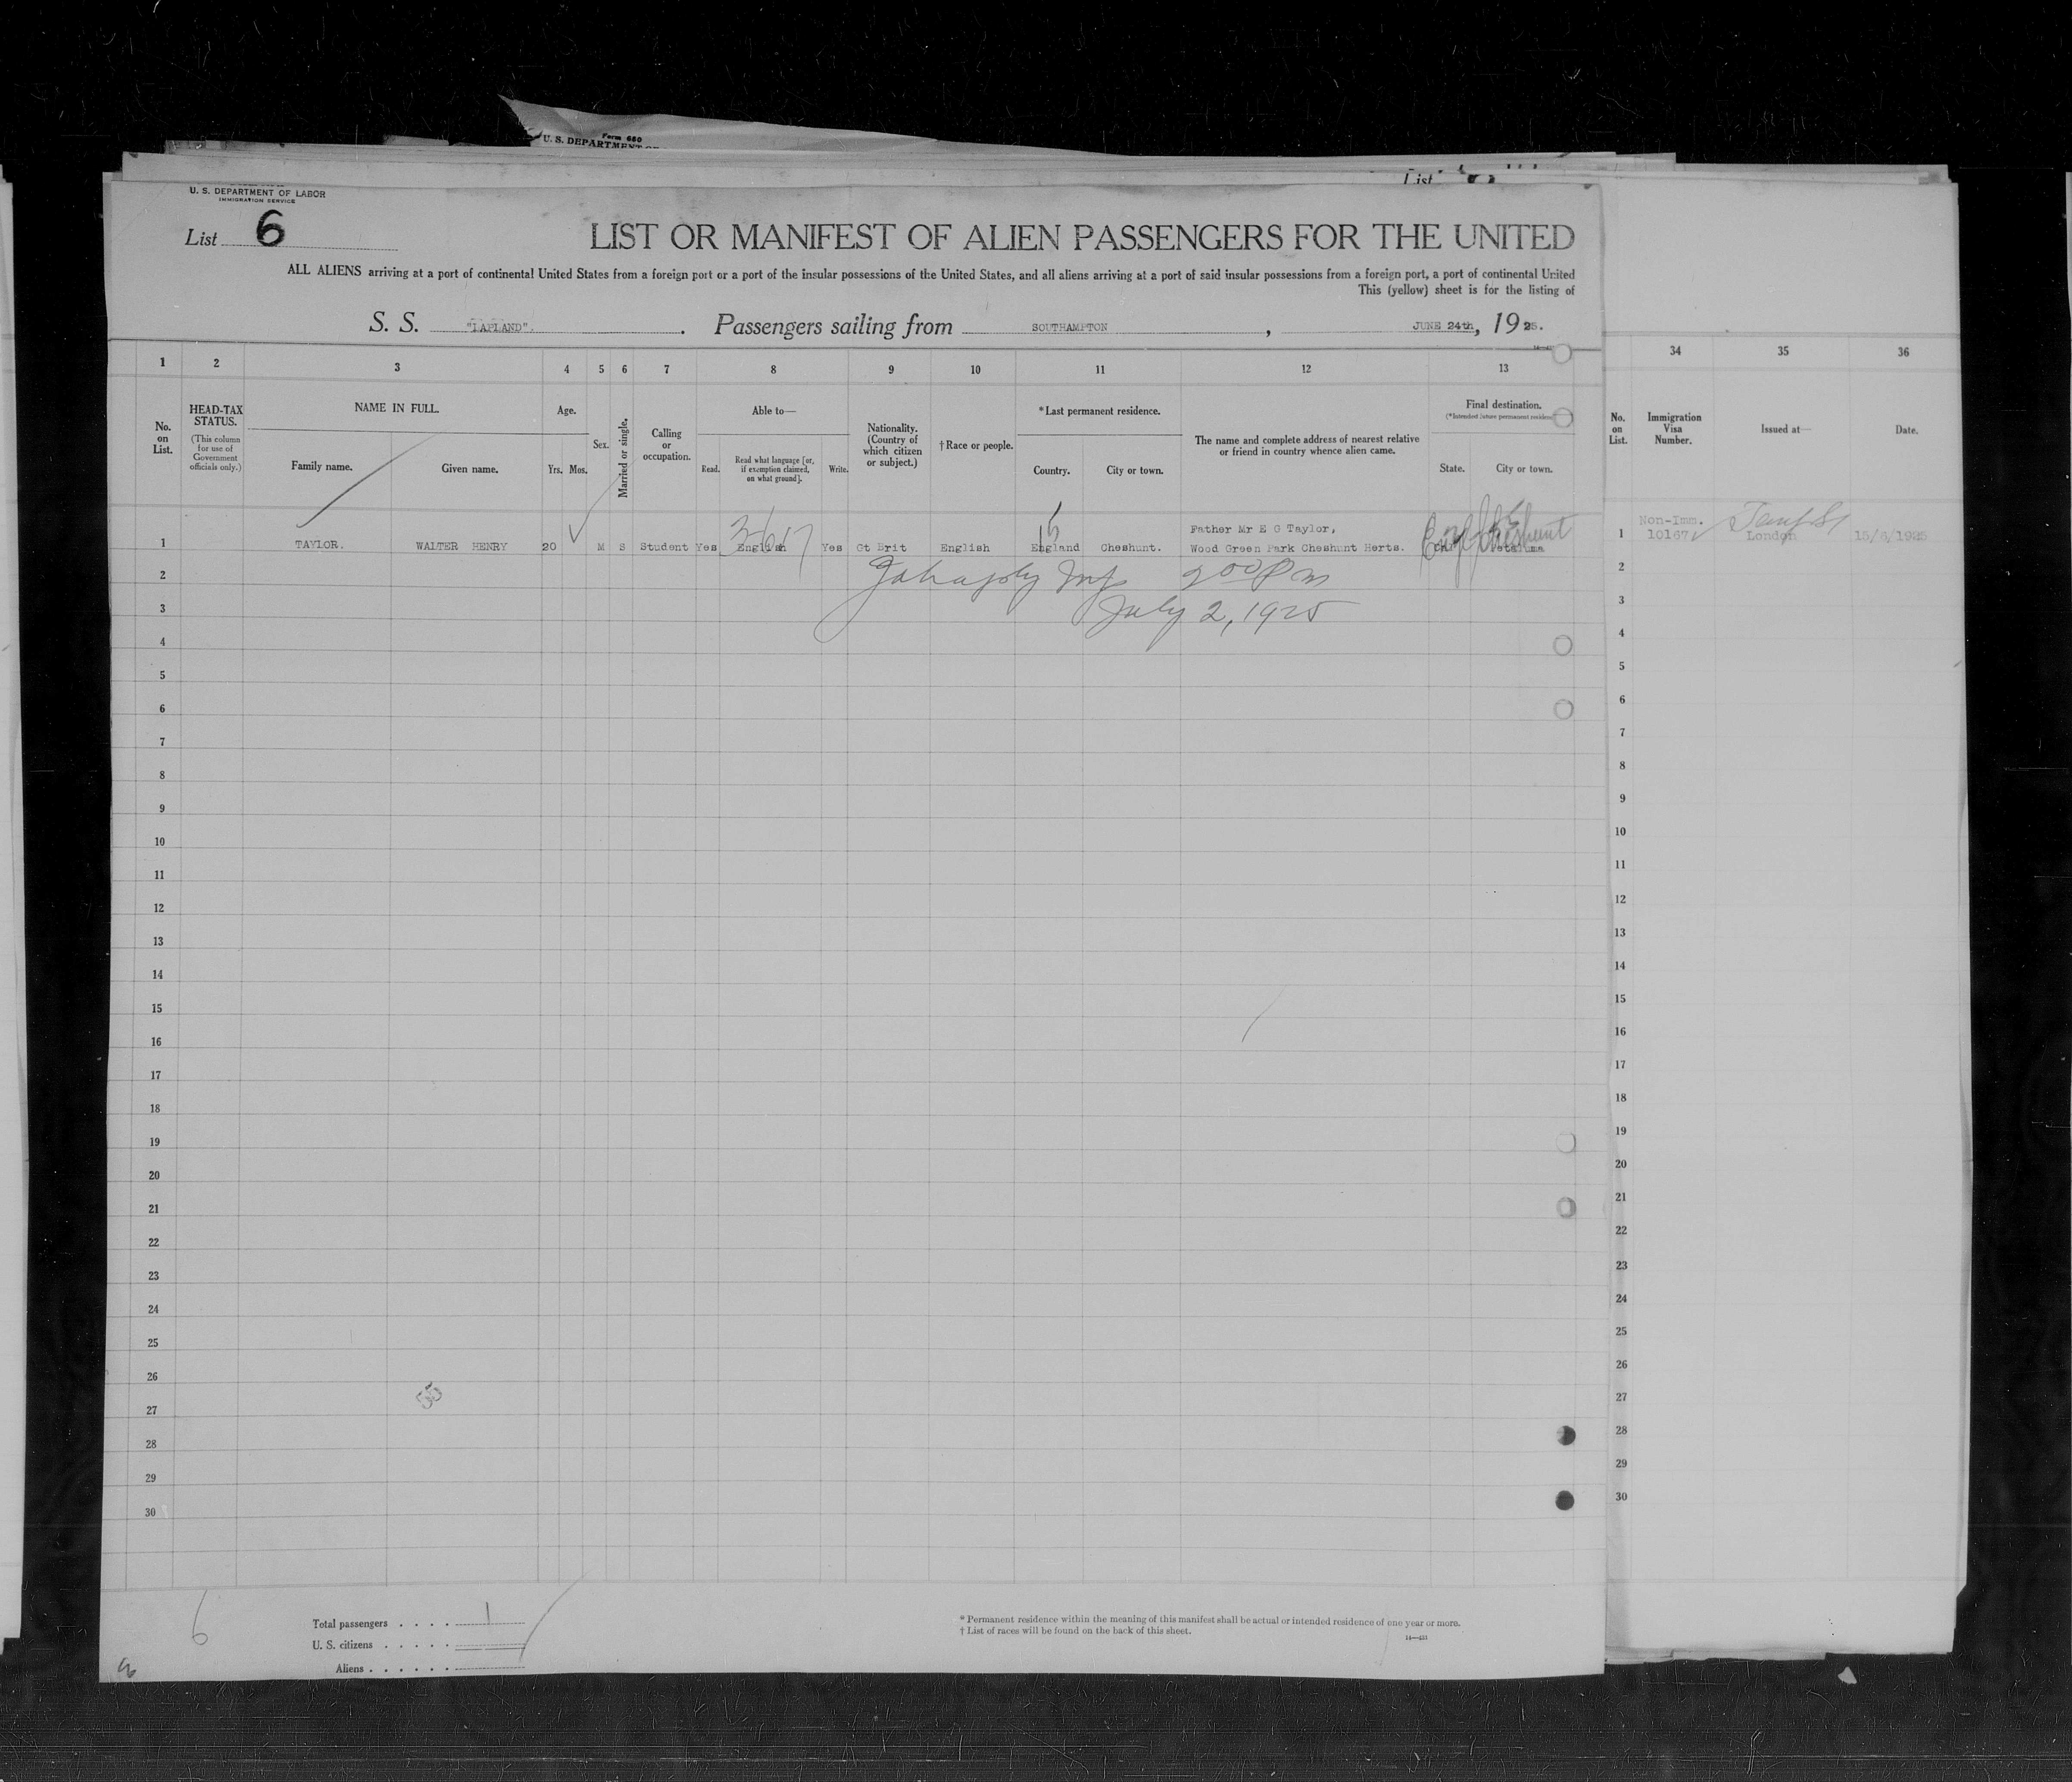 Form 680
U. S. DEPARTMENT OF
List
U. S. DEPARTMENT OF LABOR
IMMIGRATION SERVICE
List 6
LIST OR MANIFEST OF ALIEN PASSENGERS FOR THE UNITED
ALL ALIENS arriving at a port of continental United States from a foreign port or a port of the insular possessions of the United States, and all aliens arriving at a port of said insular possessions from a foreign port, a port of continental United
This (yellow) sheet is for the listing of
S. S. "LAPLAND". Passengers sailing from SOUTHAMPTON, JUNE 24th, 1925.
1 2 3 4 5 6 7 8 9 10 11 12 13 34 35 36
No. on List.
HEAD-TAX STATUS.
(This column for use of Government officials only.)
NAME IN FULL.
Family name. Given name.
Age.
Yrs. Mos.
Sex.
Married or single.
Calling or occupation.
Able to—
Read. Read what language [or, if exemption claimed, on what ground]. Write.
Nationality. (Country of which citizen or subject.)
†Race or people.
*Last permanent residence.
Country. City or town.
The name and complete address of nearest relative or friend in country whence alien came.
Final destination.
(*Intended future permanent residence)
State. City or town.
No. on List.
Immigration Visa Number.
Issued at—
Date.
Father Mr E G Taylor,
1 TAYLOR. WALTER HENRY 20 M S Student Yes English Yes Gt Brit English England Cheshunt. Wood Green Park Cheshunt Herts. Cheshunt
1 Non-Imm. 10167 London 15/6/1925
2 2
2 00 Pm
3 3
July 2, 1925
4 4
5 5
6 6
7 7
8 8
9 9
10 10
11 11
12 12
13 13
14 14
15 15
16 16
17 17
18 18
19 19
20 20
21 21
22 22
23 23
24 24
25 25
26 26
55
27 27
28 28
29 29
30 30
6
Total passengers . . . . 1
U. S. citizens . . . . .
Aliens . . . . . .
* Permanent residence within the meaning of this manifest shall be actual or intended residence of one year or more.
† List of races will be found on the back of this sheet.